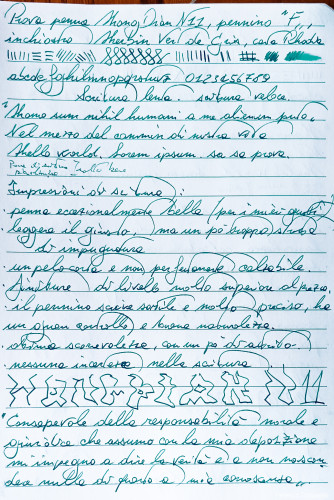 Prova penna Hong Dian N11, pennino "F",
inchiostro Herbin Vert de Gris, carta Rhodia
abcdefghijklmnopqrstuvz 0123456789
Scrittura lenta. scrittura veloce.
"Homo sum nihil humani a me alienum puto.
Nel mezzo del cammin di nostra vita
Hello world. Lorem ipsum. sa sa prova.
Impressioni di scrittura:
penna eccezionalmente bella (per i miei gusti)
leggera il giusto, ma un po' troppo stretta
di impugnatura
un pelo corta e non perfettamente calzabile.
finiture di livello molto superiore al prezzo.
il pennino scrive sottile e molto preciso, ha
un gran controllo e buona naturalezza.
ottima scorrevolezza, con un po' di attrito.
nessuna incertezza nella scrittura
HONGDIAN N11
"Consapevole della responsabilità morale e
giuridica che assumo con la mia deposizione
mi impegno a dire la verità e a non nascon-
dere nulla di quanto a mia conoscenza...